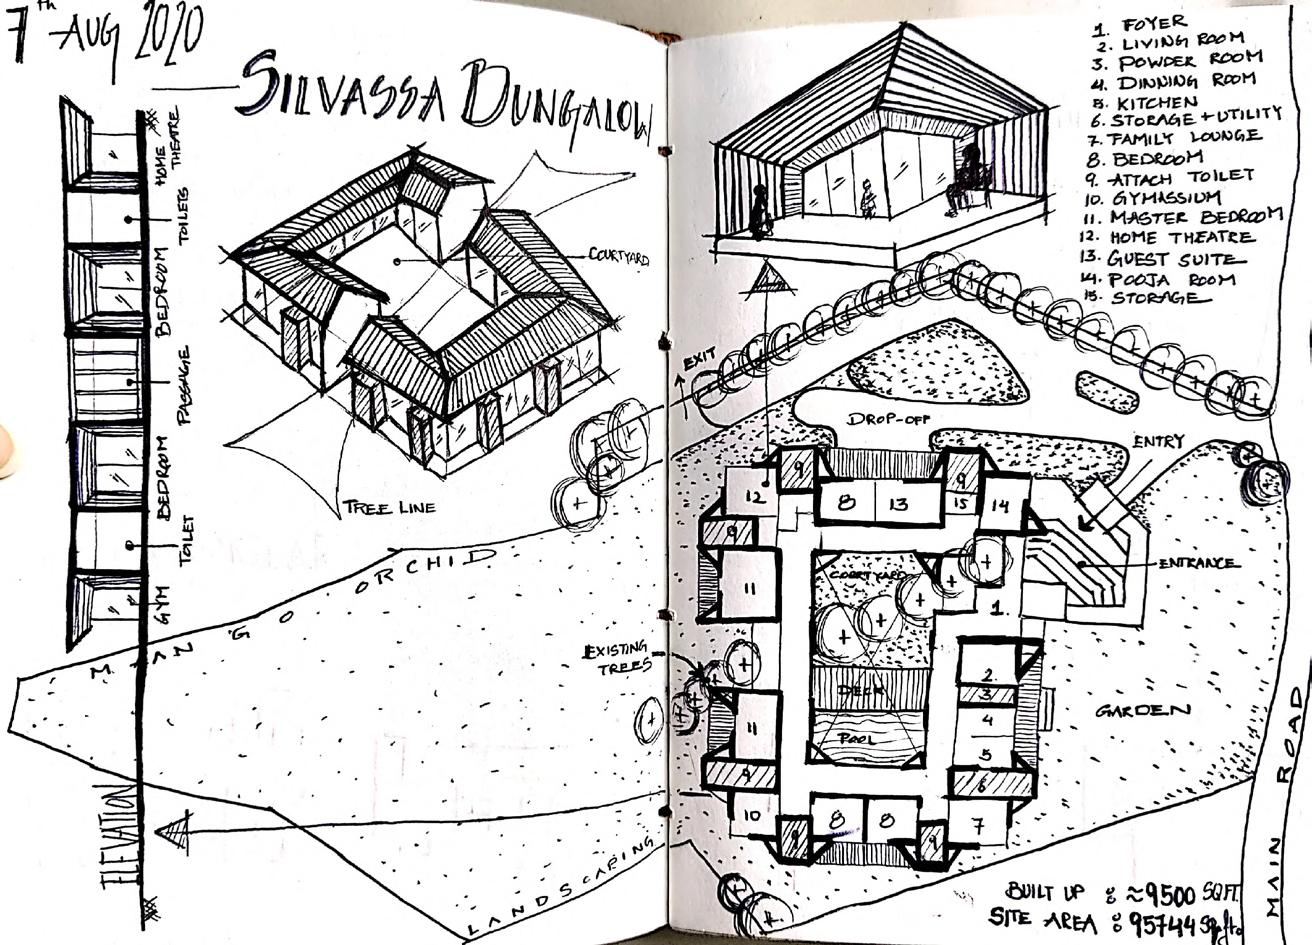 7th AUG 2020
SILVASSA BUNGALOW
HOME THEATRE
TOILETS
BEDROOM
PASSAGE
BEDROOM
TOILET
GYM
ELEVATION
COURTYARD
TREE LINE
MANGO ORCHID
EXISTING
TREES
LANDSCAPING
1. FOYER
2. LIVING ROOM
3. POWDER ROOM
4. DINNING ROOM
5. KITCHEN
6. STORAGE + UTILITY
7. FAMILY LOUNGE
8. BEDROOM
9. ATTACH TOILET
10. GYMASSIUM
11. MASTER BEDROOM
12. HOME THEATRE
13. GUEST SUITE
14. POOJA ROOM
15. STORAGE
EXIT
DROP-OFF
ENTRY
ENTRANCE
9
9
12
8
13
15
14
9
11
COURTYARD
1.
2
3
DECK
4
11
POOL
5
9
6
10
8
8
7
9
9
GARDEN
MAIN ROAD
BUILT UP : ≈9500 SQFT.
SITE AREA : 95744 Sq.ft.